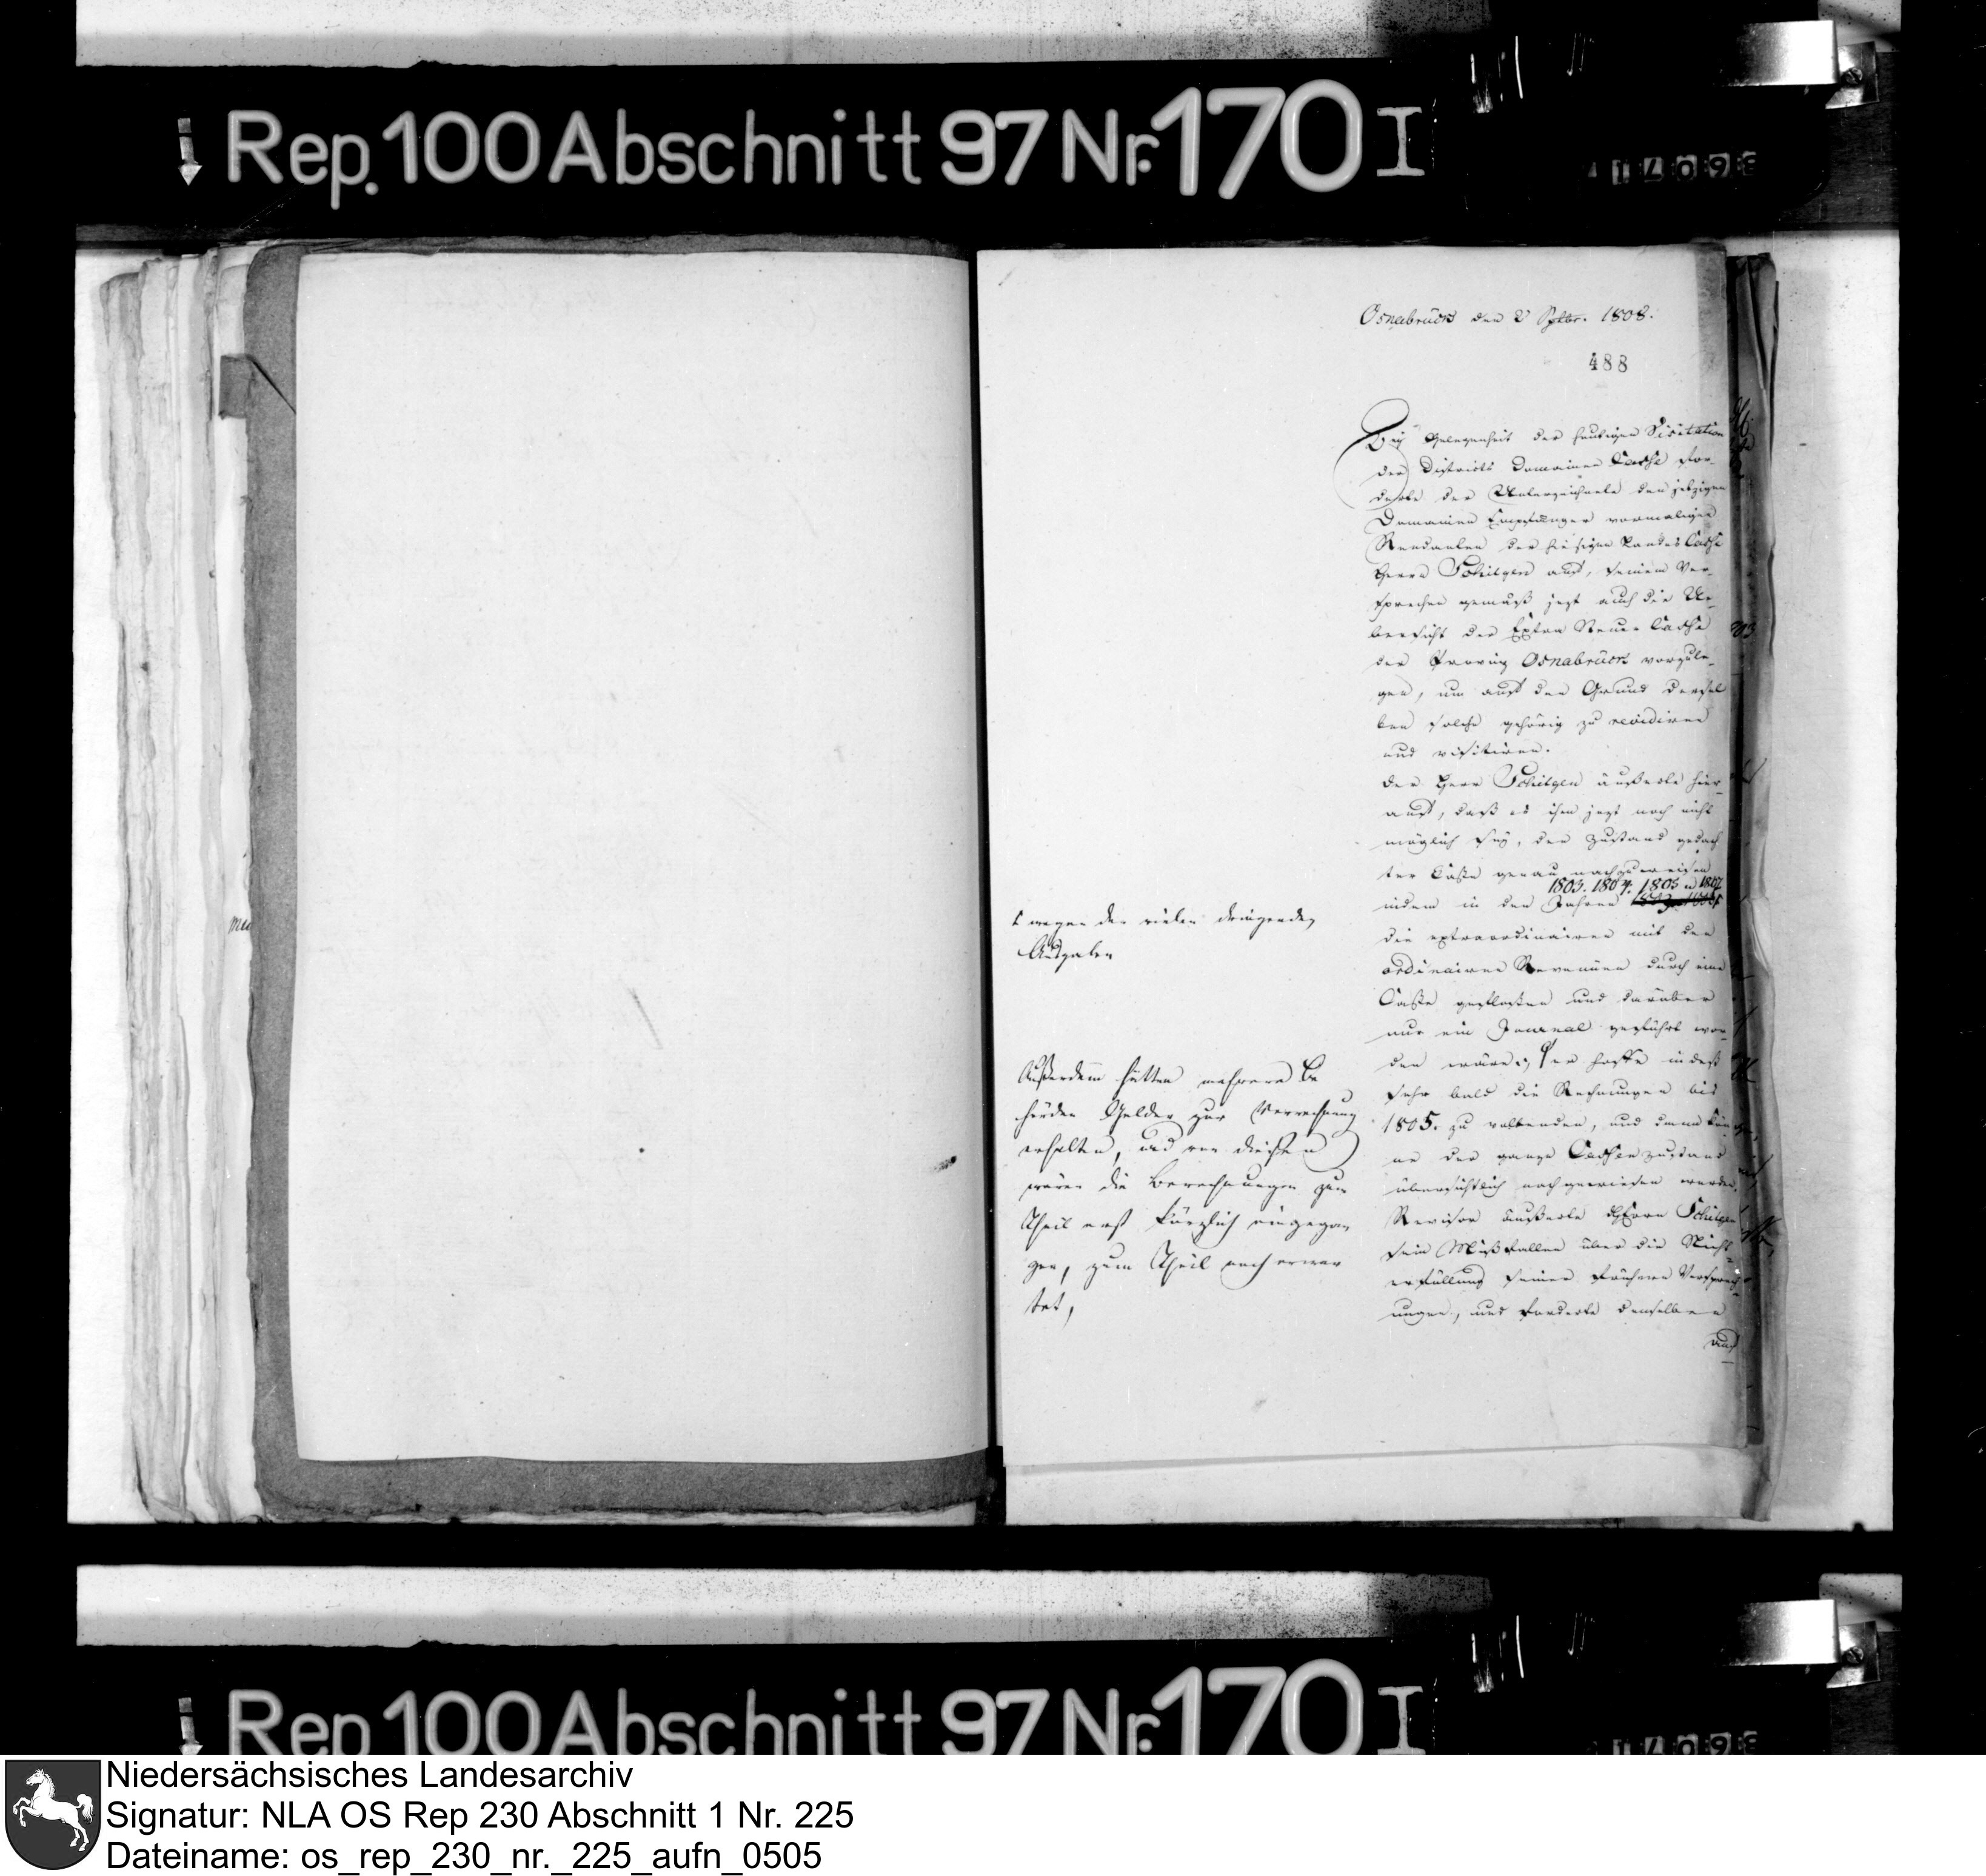 Rep. 100 Abschnitt 97 Nr. 170 I
Osnabrück den 2 Septbr. 1808.
488
Bey Gelegenheit der heutigen Visitation
der Districts Domainen Casse for-
derte der Unterzeichnete den jetzigen
Domainen Empfänger vormaligen
Rendanten der hiesigen Landes Casse
Herrn Schilgen auf, seinem Ver-
sprechen gemäß jezt auch die Ue-
bersicht der Extra Steuer Casse
der Provinz Osnabrück vorzule-
gen, um auf den Grund dersel
ben solche gehörig zu revidiren
und visitiren.
Der Herr Schilgen äußerte hier-
auf, daß es ihm jezt noch nicht
möglich sey, den Zustand gedach
ter Casse genau nachzuweisen
1803. 1804. 1805 u 1807
indem in den Jahren
die extraordinairen mit den
ordinairen Revenüen durch eine
Casse geflossen und darüber
nur ein Journal geführt wor-
den wäre, er hoffe indeß
sehr bald die Rechnungen bis
1805. zu vollenden, und dann kön
ne der ganze Cassenzustand
übersichtlich nachgewiesen werden.
Revisor äußerte Herrn Schilgen
sein Mißfallen über die Nicht
erfüllung seiner früheren Versprech-
ungen, und forderte denselben
auf
wegen der vielen dringenden
Ausgaben
Außerdem hätten mehrere Be
hörden Gelder zur Verrechnung
erhalten, und von diesen
wären die Berechnungen zum
Theil erst kürzlich eingegan
gen, zum Theil noch erwar
tet,
Rep 100 Abschnitt 97 Nr. 170 I
Niedersächsisches Landesarchiv
Signatur: NLA OS Rep 230 Abschnitt 1 Nr. 225
Dateiname: os_rep_230_nr._225_aufn_0505